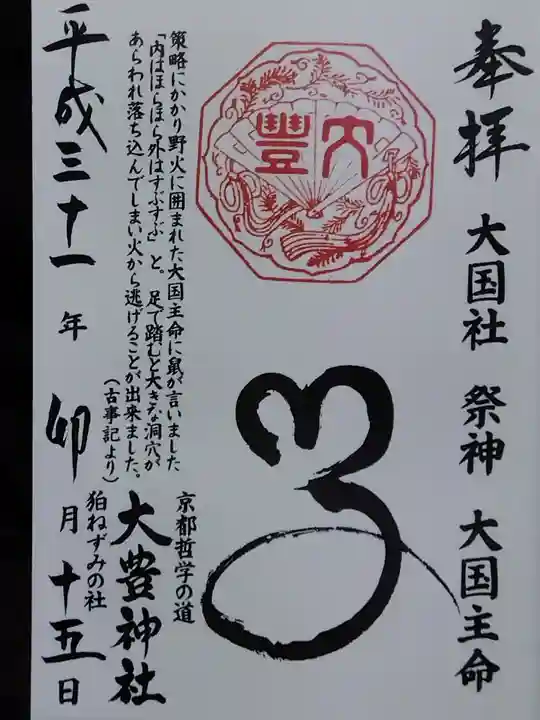 奉拝
大国社 祭神 大国主命
大豐
策略にかかり野火に囲まれた大国主命に鼠が言いました
「内はほらほら外はすぶすぶ」と。足で踏むと大きな洞穴が
あらわれ落ち込んでしまい火から逃げることが出来ました。
(古事記より)
京都哲学の道
大豊神社
狛ねずみの社
平成三十一年 卯月十五日